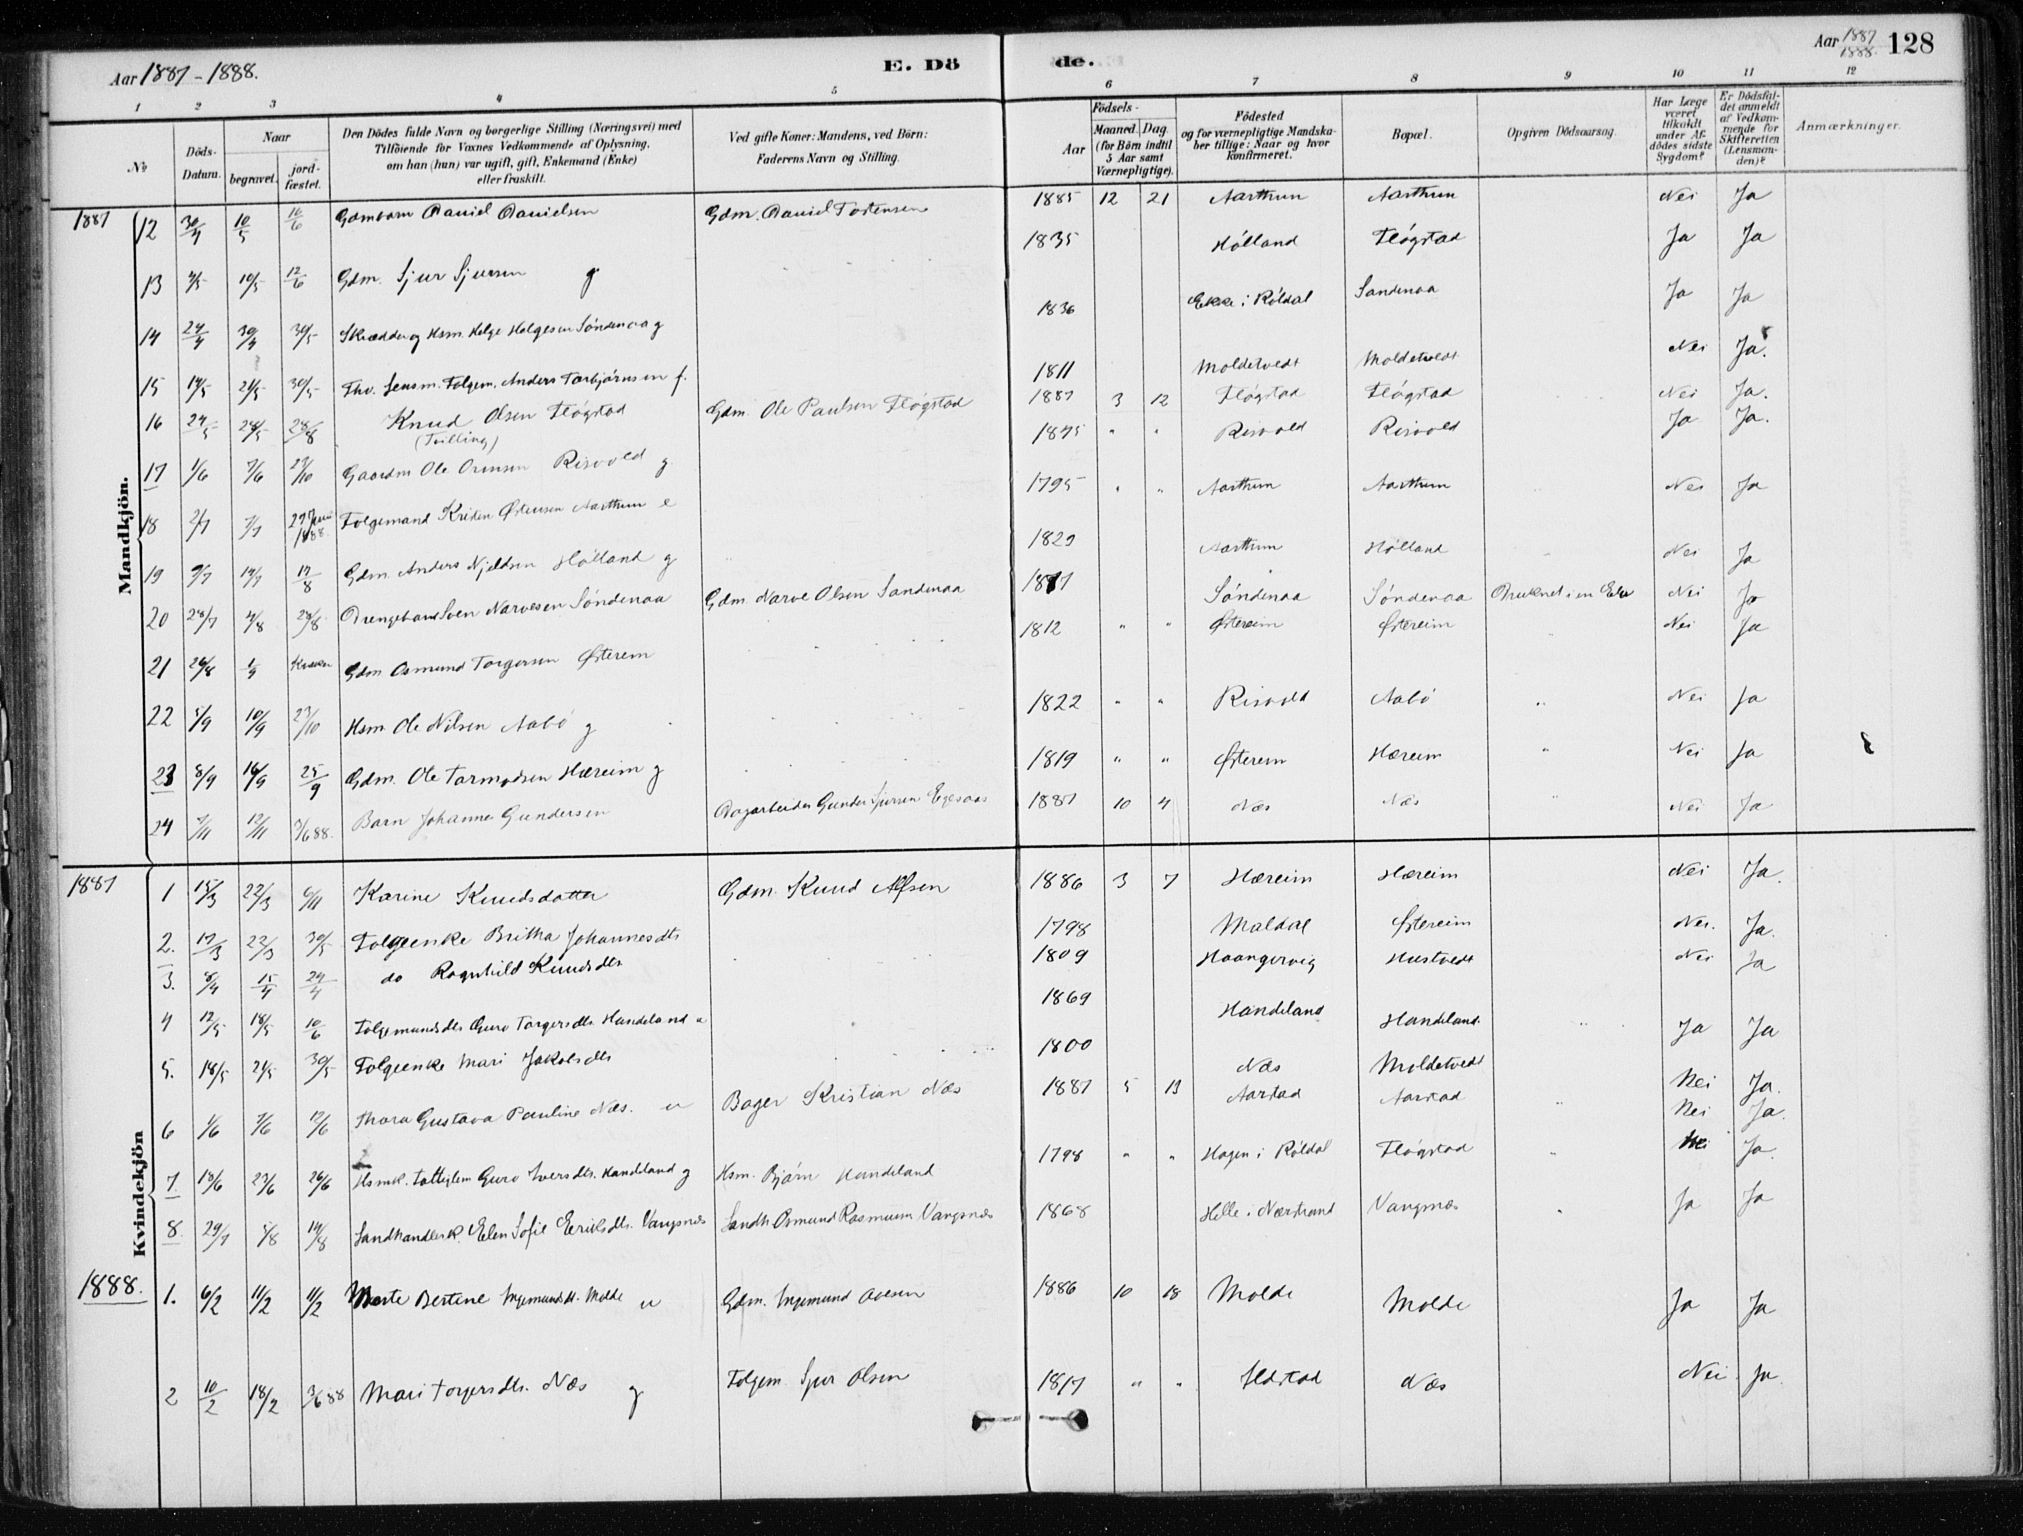 Aar 1887-1888.
E. Dö
de.
Aar 1887
1888.
128
1 2 3 4 5 6 7 8 9 10 11 12
No
Döds-
Datum.
Naar
begravet.
jord-
fæstet.
Den Dödes fulde Navn og borgerlige Stilling (Næringsvei) med
Tilföiende for Voxnes Vedkommende af Oplysning,
om han (hun) var ugift, gift, Enkemand (Enke)
eller fraskilt.
Ved gifte Koner: Mandens, ved Börn:
Faderens Navn og Stilling.
Födsels-
Aar
Maaned. Dag
(for Börn indtil
5 Aar samt
Værnepligtige).
Födested
og for værnepligtige Mandska-
ber tillige: Naar og hvor
konfirmeret.
Bopæl.
Opgiven Dödsaarsag.
Har Læge
været
tilkaldt
under Af-
dödes sidste
Sygdom?
Er Dödsfal-
det anmeldt
af Vedkom-
mende for
Skifteretten
(Lensman-
den)?
Anmærkninger.
Mandkjön.
1887 12 30/4 10/5 10/6 Gdmbarn Daniel Danielsen Gdm. Daniel Tostensen 1885 12 21 Aarthun Aarthun Nei Ja
13 4/5 10/5 12/6 Gdm. Sjur Sjursen g 1835 Hólland Flógstad Ja Ja
14 24/4 30/4 30/5 Skrædder og Hsm. Helge Helgesen Sóndenaa g 1836 Ekke i Róldal Sandenaa Ja Ja
15 14/5 21/5 30/5 Fhv. Lensm. Folgem. Anders Torbjórnsen f. 1811 Moldetvedt Moldetvedt Nei Ja.
16 24/5 28/5 28/8 Knud Olsen Flógstad Gdm. Ole Paulsen Flógstad 1887 3 12 Flógstad Flógstad Nei Ja.
(Tvilling)
17 1/6 7/6 23/10 Gaardm Ole Ormsen Risvold g. 1845 " " Risvold Risvold Ja Ja.
18 2/7 7/7 27 Juni 1888. Folgemand Kristen Østensen Aarthun e 1795 " " Aarthun Aarthun Nei Ja
19 9/7 14/7 14/8 Gdm. Anders Njeldsen Hólland g 1829 Aarthun Hólland Nei Ja
20 28/7 4/8 28/8 Drengebarn Sven Narvesen Sóndenaa Gdm. Narve Olsen Sandenaa Sóndenaa Sóndenaa Druknet i en Elv Nei Ja
21 26/8 1/9 Gdm Osmund Torgersen Østerem 1812 " " Østereim Østereim Nei Ja
22 5/9 10/9 23/10 Hsm. Ole Nilsen Aabó g 1822 " " Risvold Aabó Nei Ja
23 8/9 16/9 25/9 Gdm. Ole Tormodsen Hæreim g 1819 " " Østerem Hæreim " Nei Ja
24 7/11 12/11 3/6 88. Barn Johanne Gundersen Dagarbeider Gunder Sjursen 1887 10 4 Næs Næs " Nei Ja
Kvindekjön
1887 1 15/3 22/3 6/11 Karine Knudsdatter Gdm. Knud 1886 3 7 Hæreim Hæreim Nei Ja.
2. 17/3 22/3 30/5 Folgeenke Britha Johannesdtr 1798 Maldal Østereim Nei. Ja.
3. 8/4 15/4 24/4 do Ragnhild Knudsdtr 1809 Haangervig Hustvedt Nei Ja
4 12/5 18/5 10/6 Folgemandsdtr Guro Torgersdtr. Handeland u 1869 Handeland Handeland. Ja Ja
5. 18/5 24/5 30/5 Folgeenke Mari Jakobsdtr 1800 Næs Moldetvedt Nei Ja.
6 1/6 7/6 12/6 Thora Gustava Pauline Næs. u Bager Kristian Næs 1887 5 13 Aarstad Aarstad Nei Ja.
7. 18/6 23/6 26/6 Hsmk. Guro Iversdtr. Handeland g Hsm. Bjórn Handeland 1798 " " Hagen i Róldal Flógstad Nei Ja.
8. 29/7 5/8 14/8 Landhandlerk. Elen Sofie Eriksdtr. Vangsnæs Landh. Osmund Rasmussen Vangsnæs 1868 Helle i Nærstrand Vangsnæs Ja Ja
1888. 1. 6/2 11/2 11/2 Marte Bertine Ingemundsdt. Molde u Gdm. Ingemund Aaesen 1886 10 18 Molde Molde Ja Ja
2 10/2 18/2 3/6 88 Mari Torgersdtr. Næs g Folgem. Sjur Olsen 1817 " " Ilstad Næs Nei Ja.